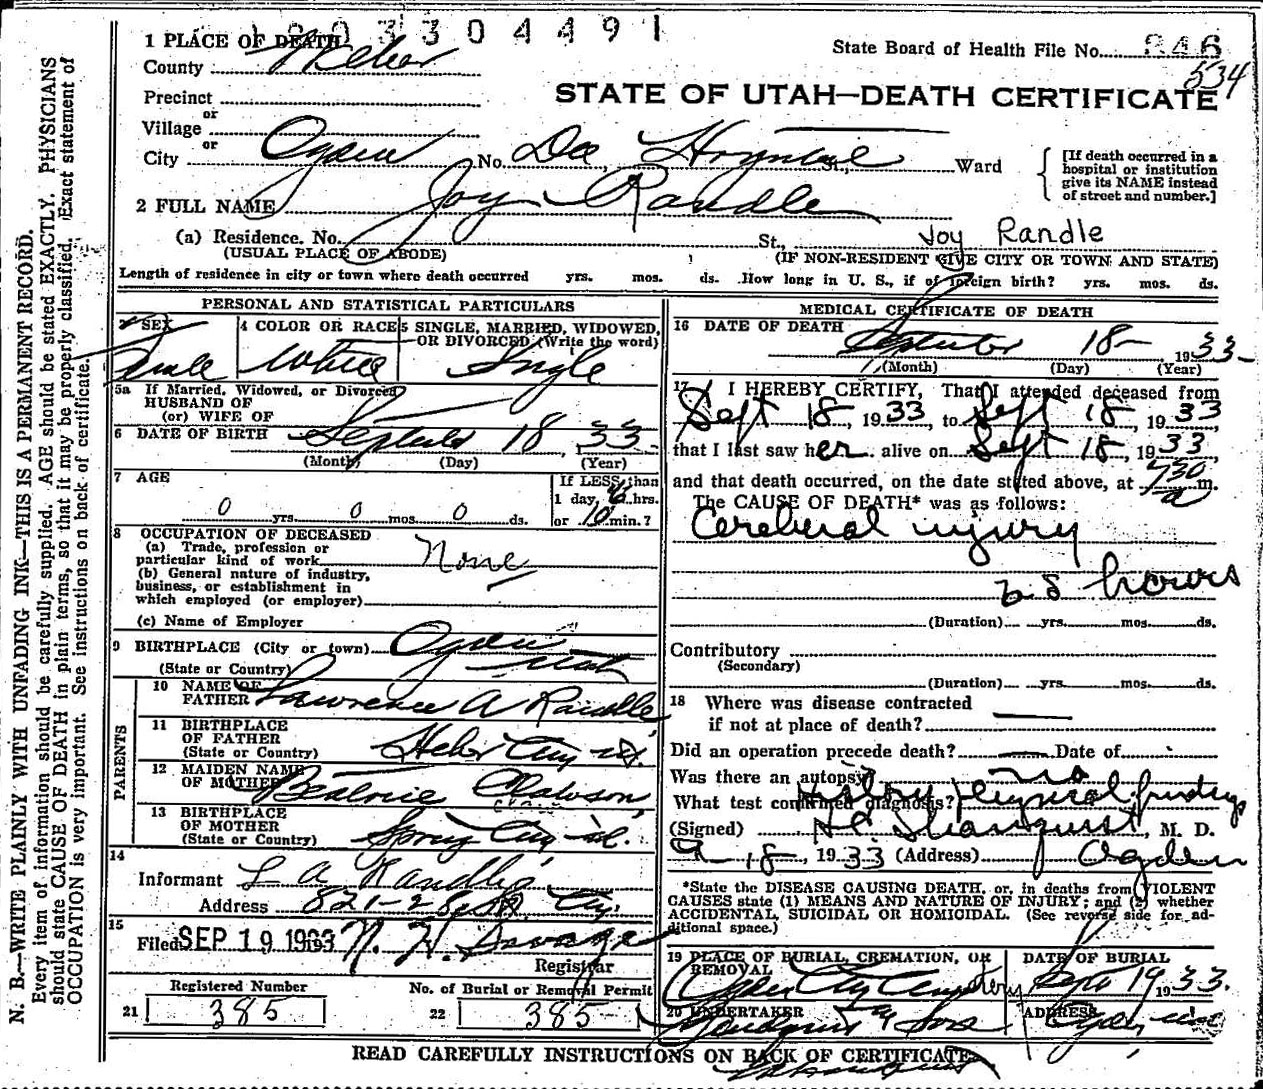 1 PLACE OF DEATH 3304491
State Board of Health File No. 346
534
County Weber
STATE OF UTAH—DEATH CERTIFICATE
Precinct
or
Village
or
City Ogden No. Dee Hospital St., Ward
[If death occurred in a hospital or institution give its NAME instead of street and number.]
2 FULL NAME Joy Randle
(a) Residence. No. St., Joy Randle
(USUAL PLACE OF ABODE) (IF NON-RESIDENT GIVE CITY OR TOWN AND STATE)
Length of residence in city or town where death occurred yrs. mos. ds. How long in U. S., if of foreign birth? yrs. mos. ds.
N. B.—WRITE PLAINLY WITH UNFADING INK—THIS IS A PERMANENT RECORD.
Every item of information should be carefully supplied. AGE should be stated EXACTLY. PHYSICIANS
should state CAUSE OF DEATH in plain terms, so that it may be properly classified. Exact statement of
OCCUPATION is very important. See instructions on back of certificate.
PERSONAL AND STATISTICAL PARTICULARS
SEX
4 COLOR OR RACE
5 SINGLE, MARRIED, WIDOWED,
OR DIVORCED (Write the word)
Female White Single
5a If Married, Widowed, or Divorced
HUSBAND OF
(or) WIFE OF
6 DATE OF BIRTH September 18, 33
(Month) (Day) (Year)
7 AGE
0 yrs. 0 mos. 0 ds.
If LESS than
1 day, 6 hrs.
or 10 min.?
8 OCCUPATION OF DECEASED
(a) Trade, profession or
particular kind of work None
(b) General nature of industry,
business, or establishment in
which employed (or employer)
(c) Name of Employer
9 BIRTHPLACE (City or town) Ogden
(State or Country) Utah
PARENTS
10 NAME OF
FATHER Lawrence A Randle
11 BIRTHPLACE
OF FATHER
(State or Country) Heber City Ut.
12 MAIDEN NAME
OF MOTHER Beatrice Clawson
13 BIRTHPLACE
OF MOTHER
(State or Country) Spring City Ut.
14
Informant L A Randle
Address 821-28 St City
15
Filed SEP 19 1933 193 N. H. Savage
Registrar
Registered Number
21 385
No. of Burial or Removal Permit
22 385
MEDICAL CERTIFICATE OF DEATH
16 DATE OF DEATH
September 18- 1933
(Month) (Day) (Year)
17 I HEREBY CERTIFY, That I attended deceased from
Sept 18, 1933, to Sept 18, 1933
that I last saw her alive on Sept 18, 1933
and that death occurred, on the date stated above, at 730 a m.
The CAUSE OF DEATH* was as follows:
Cerebral injury
hours
(Duration) yrs. mos. ds.
Contributory
(Secondary)
(Duration) yrs. mos. ds.
18 Where was disease contracted
if not at place of death?
Did an operation precede death? Date of
Was there an autopsy? no
What test confirmed diagnosis? History physical findings
(Signed) , M. D.
9-18-, 1933 (Address) Ogden
*State the DISEASE CAUSING DEATH, or, in deaths from VIOLENT
CAUSES state (1) MEANS AND NATURE OF INJURY; and (2) whether
ACCIDENTAL, SUICIDAL OR HOMICIDAL. (See reverse side for additional space.)
19 PLACE OF BURIAL, CREMATION, OR
REMOVAL
Ogden City Cemetery
DATE OF BURIAL
Sept 19 1933.
20 UNDERTAKER
& Sons
ADDRESS
Ogden Utah
READ CAREFULLY INSTRUCTIONS ON BACK OF CERTIFICATE